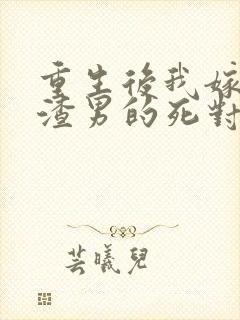 重生後我嫁
渣男的死對
芸曦兒